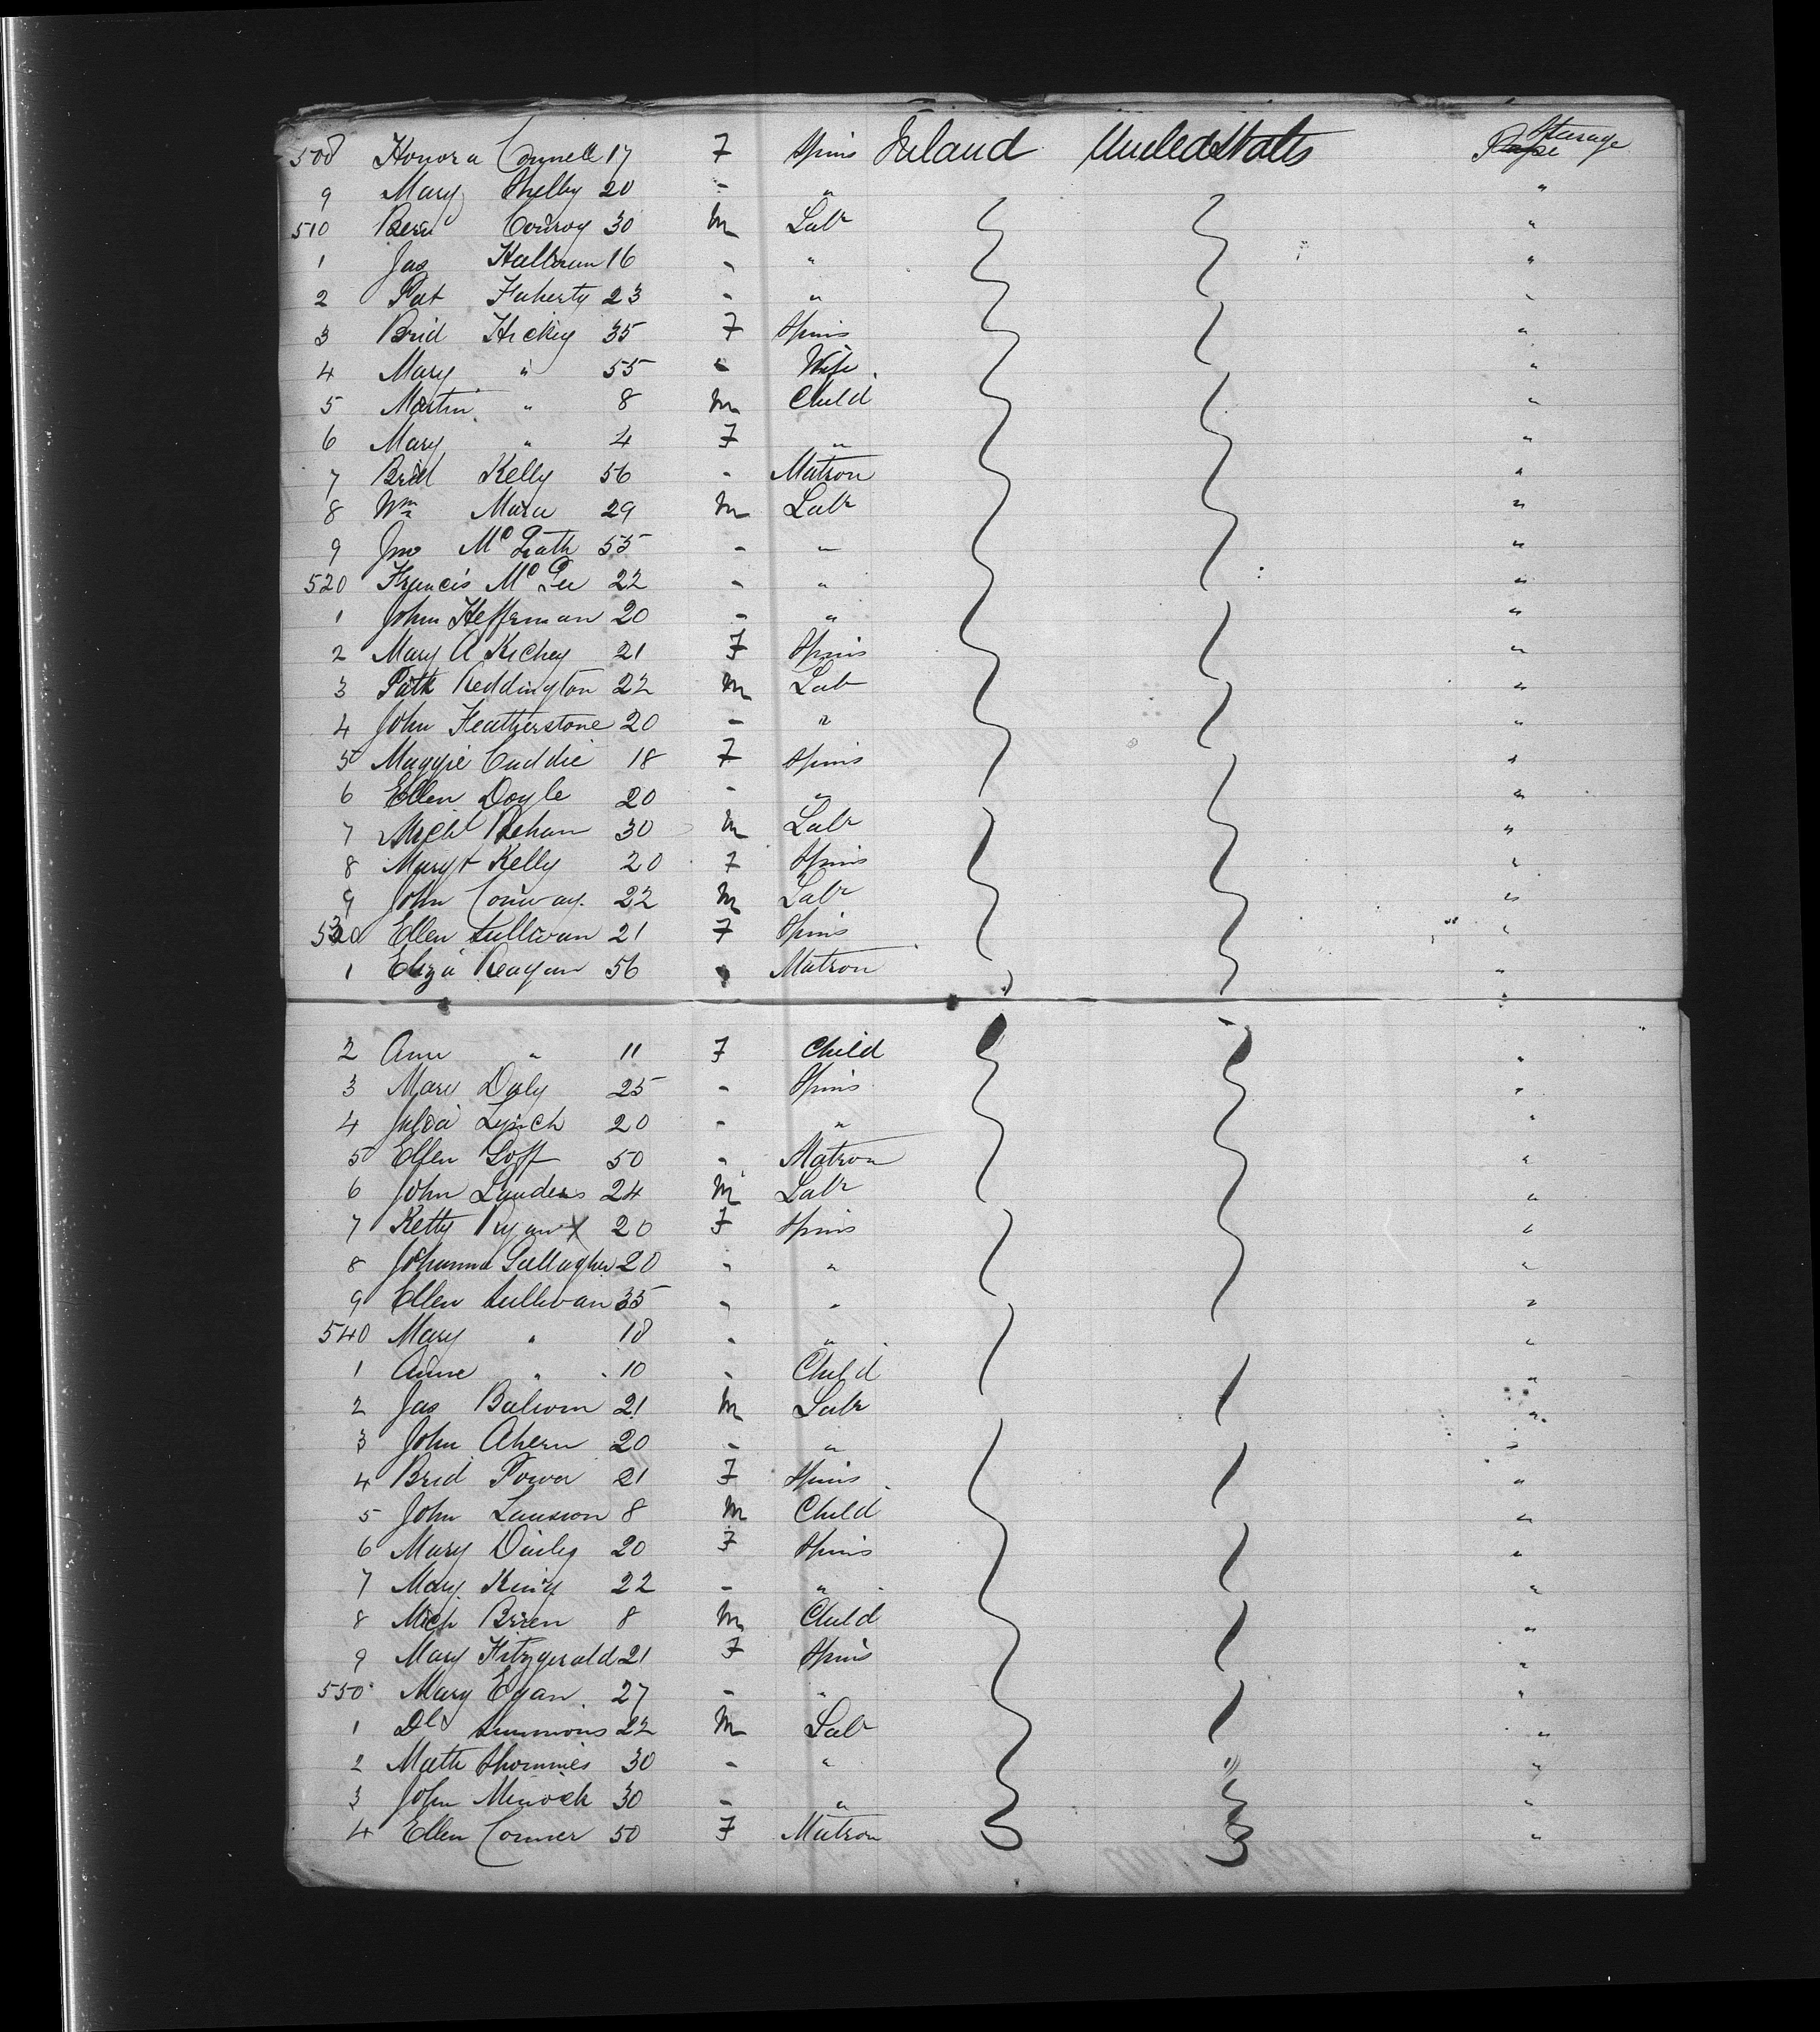 508 Honora Connell 17 F Spins Ireland United States Steerage
9 Mary Shelby 20 - "  "
510 Bern Conroy 30 M Labr "
1 Jas 16 - " "
2 Pat Flaherty 23 - " "
3 Brid Hickey 35 F Spins "
4 Mary " 55 - Wife "
5 Martin " 8 M Child "
6 Mary " 4 F " "
7 Brid Kelly 56 - Matron "
8 Wm Mara 29 M Labr "
9 Jno McGrath 55 - " "
520 Francis McGee 22 - " "
1 John Heffernan 20 - " "
2 Mary A Richey 21 F Spins "
3 Patk Reddington 22 M Lab "
4 John Featherstone 20 - " "
5 Maggie Cuddie 18 F Spins "
6 Ellen Doyle 20 - " "
7 Michl Behan 30 M Labr "
8 Margt Kelly 20 F Spins "
9 John Conway 22 M Labr "
530 Ellen Sullivan 21 F Spins "
1 Eliza Reagan 56 " Matron "
2 Ann " 11 F Child "
3 Mary Daly 25 - Spins "
4 Julia Lynch 20 - " "
5 Ellen Goff 50 - Matron "
6 John Landers 24 M Labr "
7 Ketty Ryan X 20 F Spins "
8 Johanna Gallagher 20 - " "
9 Ellen Sullivan 35 - " "
540 Mary " 18 - " "
1 Anne " 10 - Child "
2 Jas Balwin 21 M Labr "
3 John Ahern 20 - " "
4 Brid Power 21 F Spins "
5 John Lawson 8 M Child "
6 Mary Dailey 20 F Spins "
7 Mary King 22 - " "
8 Mich Brien 8 M Child "
9 Mary Fitzgerald 21 F Spins "
550 Mary Egan 27 - " "
1 Dl Simmons 22 M Labr "
2 Math 30 - " "
3 John Minock 30 - " "
4 Ellen Conner 50 F Matron "